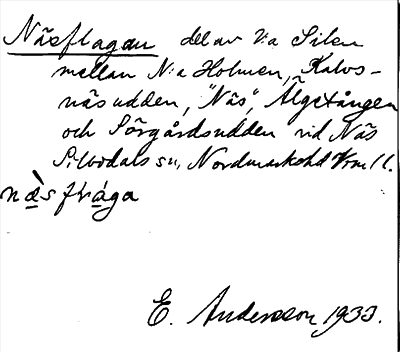 Näsflagan del av V:a Silen
mellan N:a Holmen, Kalvs-
näsudden, "Näs", Älgetången
och Sörgårdsudden vid Näs
Silbodals sn, Nordmarks hd Vrml.
næ̀sfɫága
E. Andersson 1933.